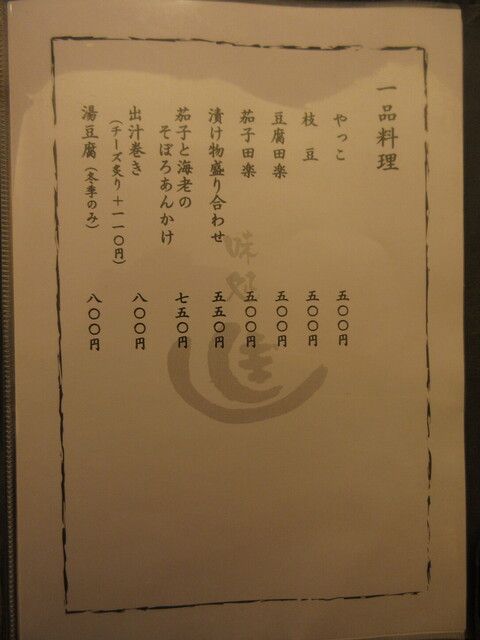 一品料理
やっこ 五〇〇円
枝豆 五〇〇円
豆腐田楽 五〇〇円
茄子田楽 五〇〇円
漬け物盛り合わせ 五五〇円
茄子と海老の
そぼろあんかけ 七五〇円
出汁巻き 八〇〇円
(チーズ炙り+一一〇円)
湯豆腐(冬季のみ) 八〇〇円
味処